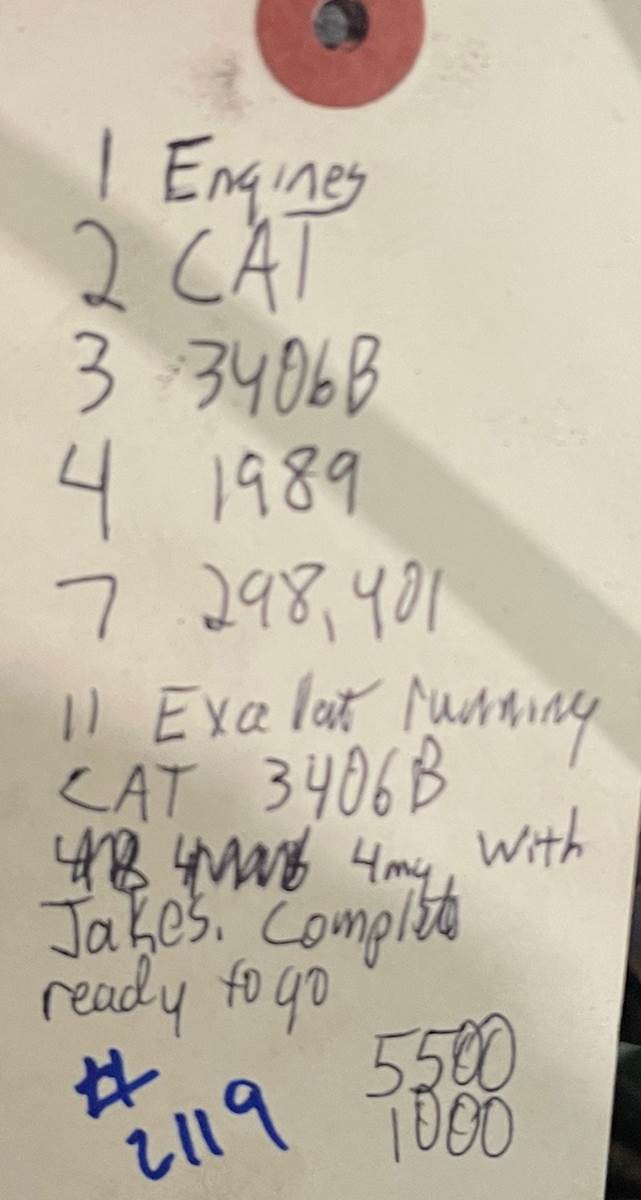 1 Engines
2 CAT
3 3406B
4 1989
7 298,401
11 Exelent running
CAT 3406B
4mg with
Jakes. Complete
ready to go
5500
# 2119
1000